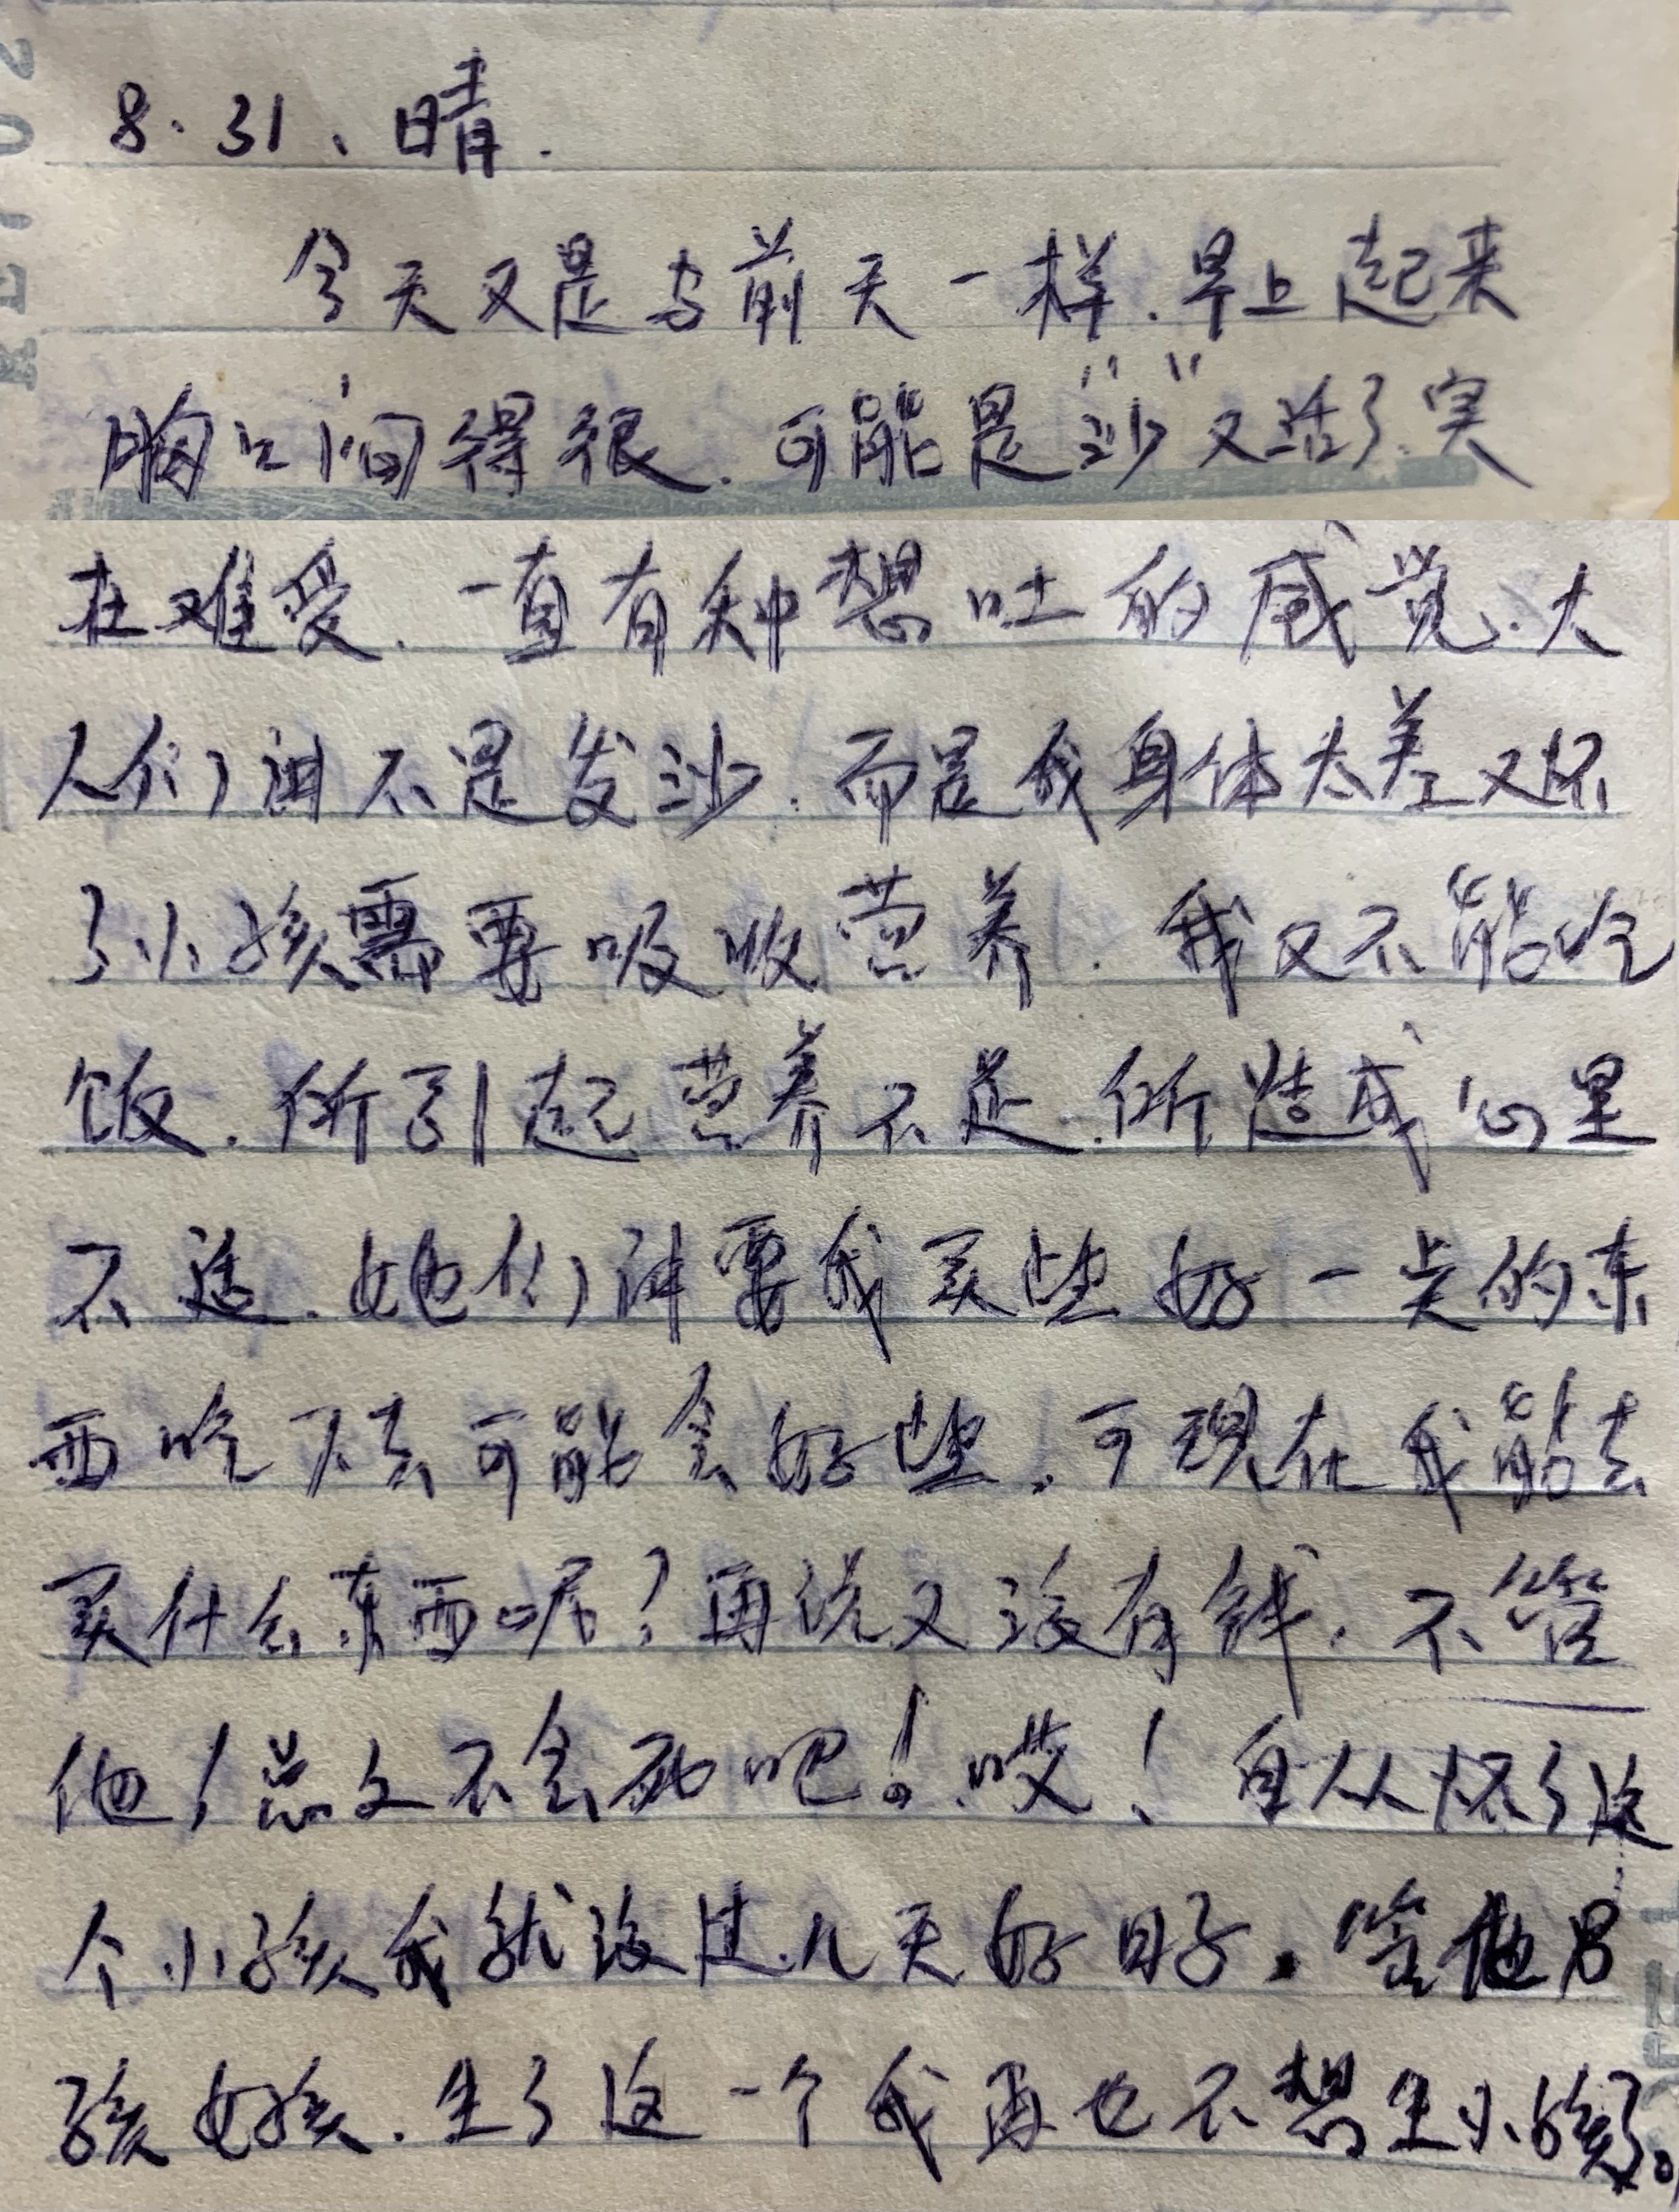 8.31、晴.
今天又是与前天一样.早上起来
胸口闷得很.可能是"沙"又活了.实
在难受.一直有种想吐的感觉.大
人们讲不是发沙.而是我身体太差又怀
了小孩需要吸收营养.我又不能吃
饭.所引起营养不足.所造成心里
不适.她们讲要我买些好一点的东
西吃下去可能会好些.可现在我能去
买什么东西呢?再说又没有钱.不管
他!总又不会死吧!哎!自从怀了这
个小孩我就没过几天好日子.管他男
孩女孩.生了这一个我再也不想生小孩了。